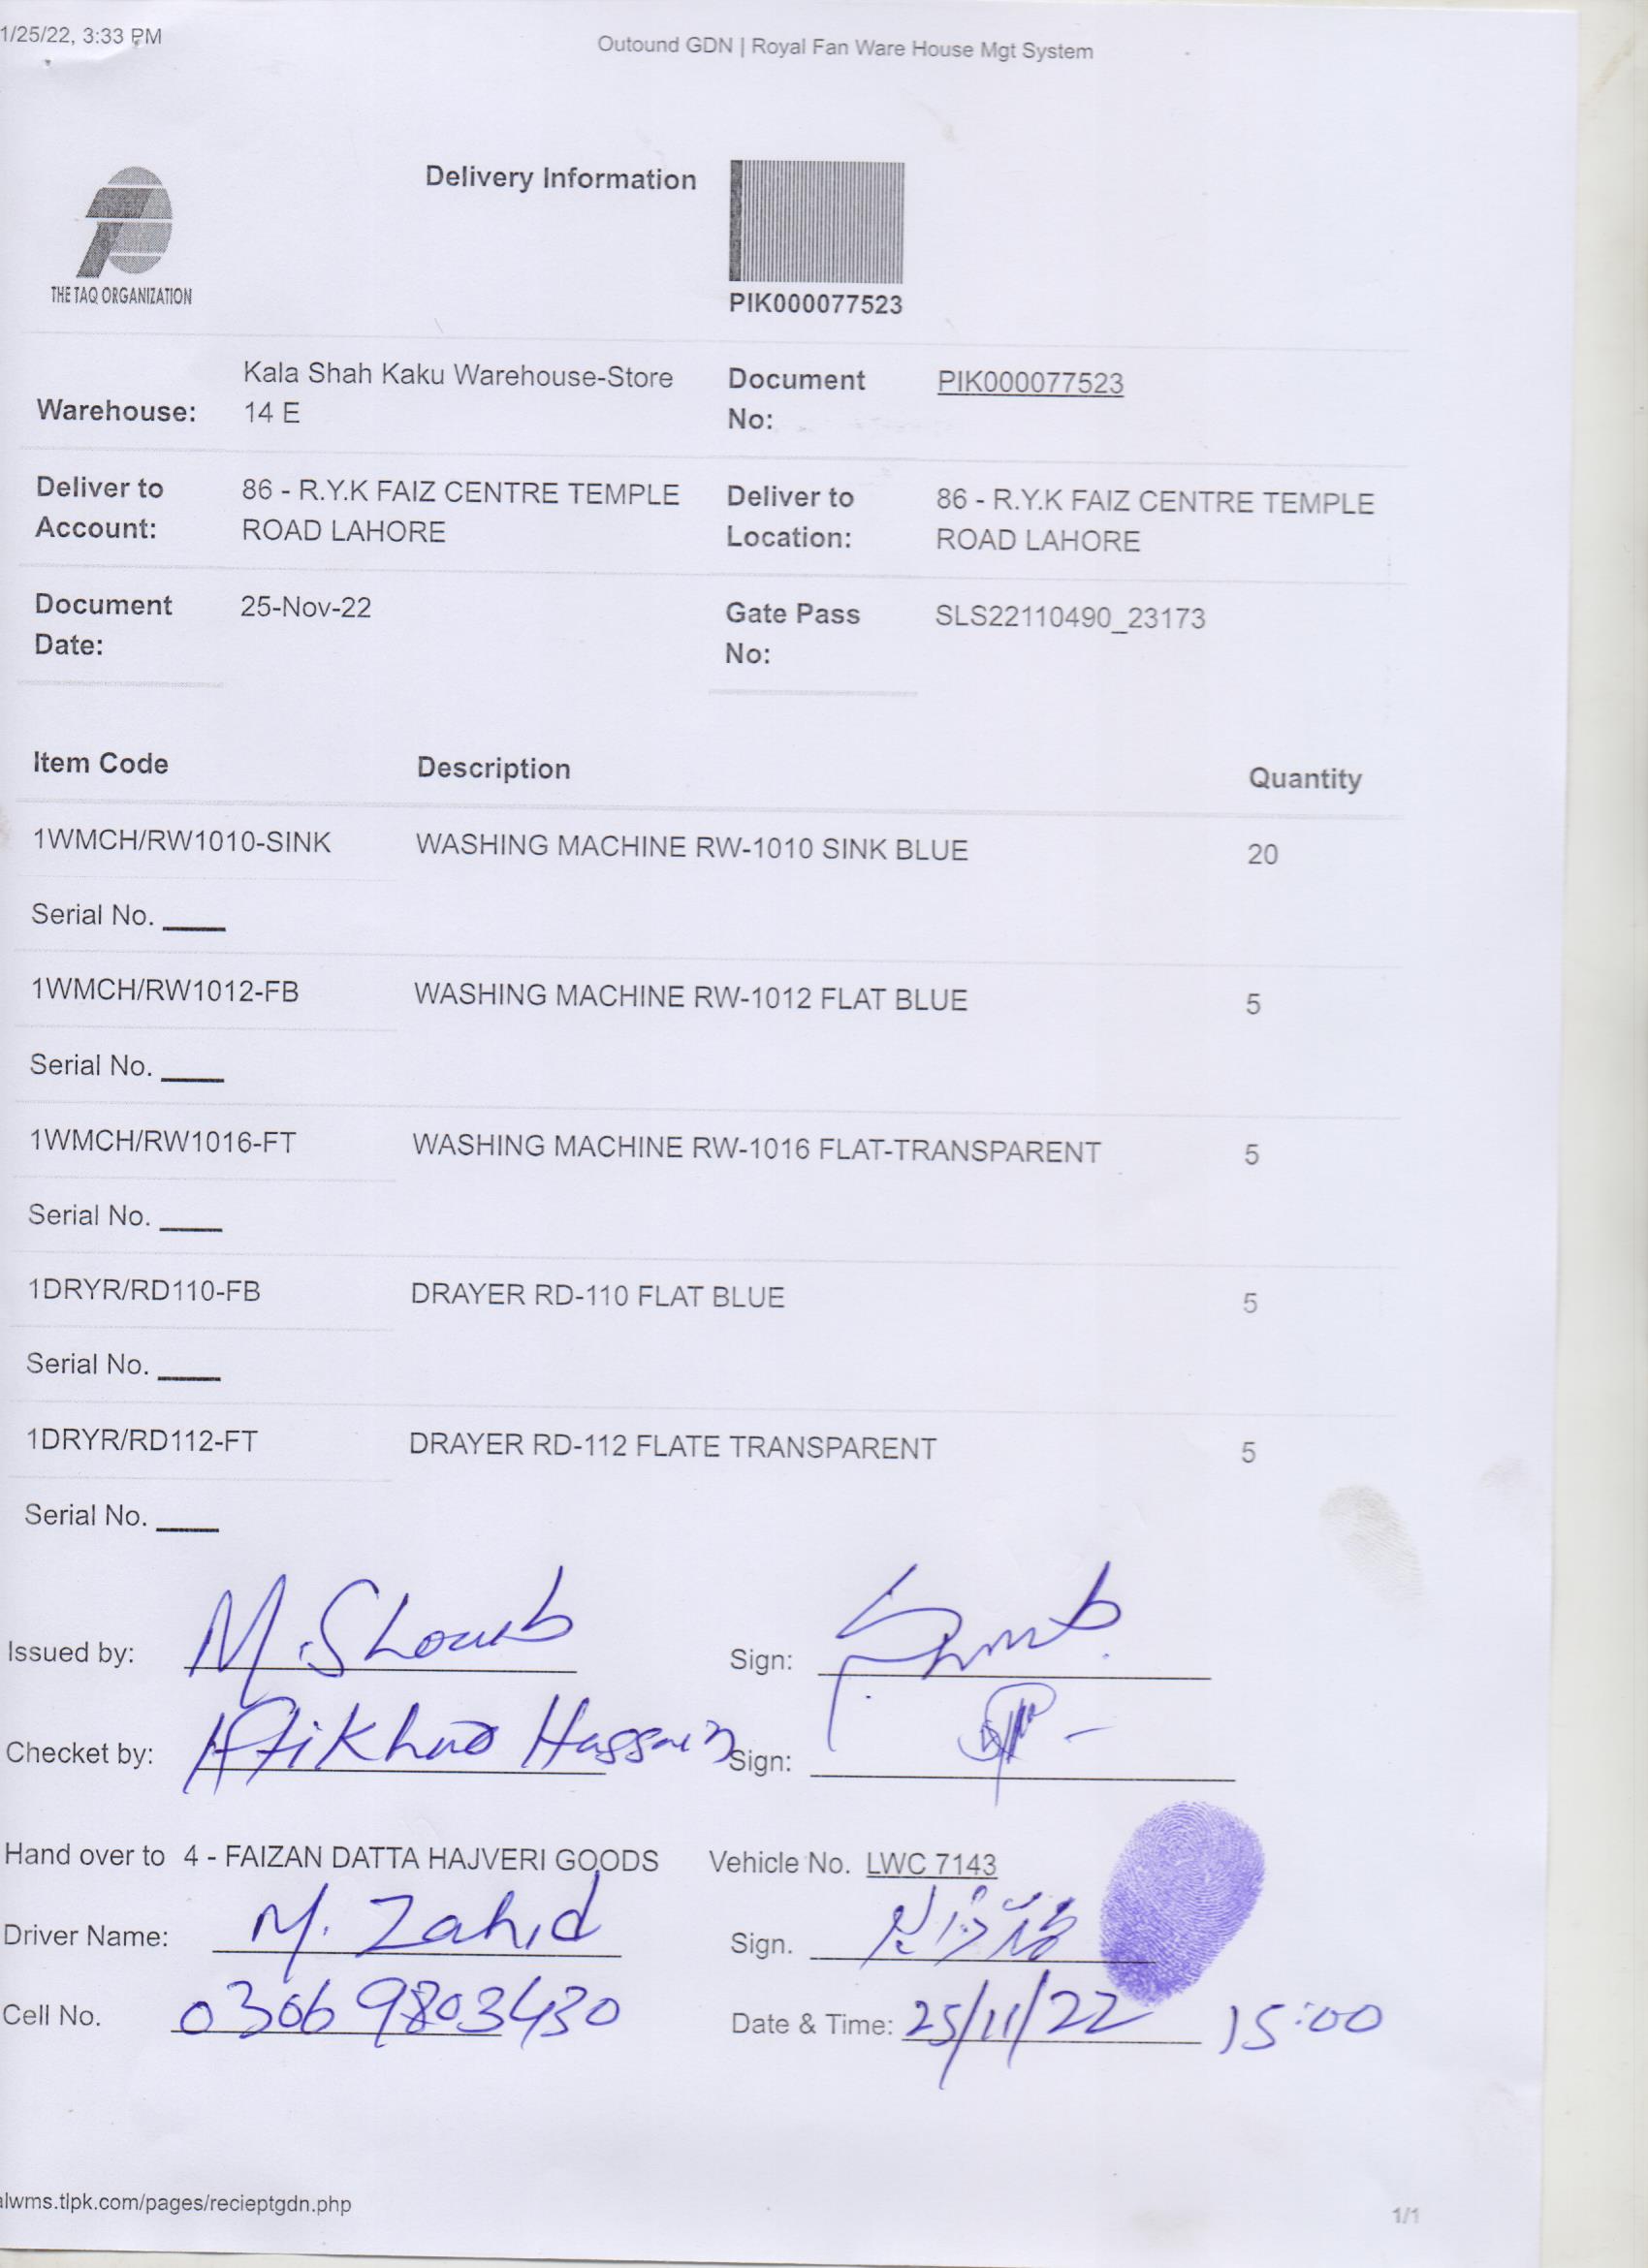 1/25/22, 3:33 PM
Outound GDN | Royal Fan Ware House Mgt System
THE TAQ ORGANIZATION
Delivery Information
PIK000077523
Warehouse: Kala Shah Kaku Warehouse-Store 14 E
Document No: PIK000077523
Deliver to Account: 86 - R.Y.K FAIZ CENTRE TEMPLE ROAD LAHORE
Deliver to Location: 86 - R.Y.K FAIZ CENTRE TEMPLE ROAD LAHORE
Document Date: 25-Nov-22
Gate Pass No: SLS22110490_23173
Item Code Description Quantity
1WMCH/RW1010-SINK WASHING MACHINE RW-1010 SINK BLUE 20
Serial No. ____
1WMCH/RW1012-FB WASHING MACHINE RW-1012 FLAT BLUE 5
Serial No. ____
1WMCH/RW1016-FT WASHING MACHINE RW-1016 FLAT-TRANSPARENT 5
Serial No. ____
1DRYR/RD110-FB DRAYER RD-110 FLAT BLUE 5
Serial No. ____
1DRYR/RD112-FT DRAYER RD-112 FLATE TRANSPARENT 5
Serial No. ____
Issued by: M. Shoaib Sign:
Checket by: Iftikhar Hassain Sign:
Hand over to 4 - FAIZAN DATTA HAJVERI GOODS Vehicle No. LWC 7143
Driver Name: M. Zahid Sign.
Cell No. 0306 9803430 Date & Time: 25/11/22 15:00
alwms.tlpk.com/pages/recieptgdn.php
1/1